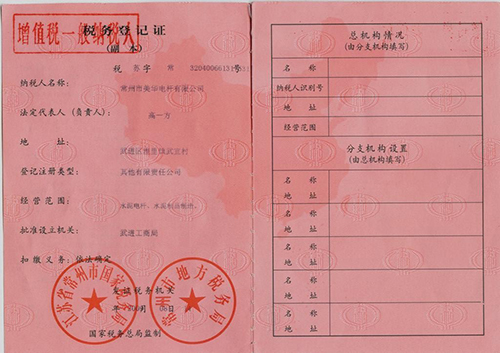 增值税一般纳税人
税务登记证
(副 本)
税 苏 字 常 32040066131 号
纳税人名称： 常州市 华电杆有限公司
法定代表人（负责人）： 高一方
地 址： 武进区 村
登记注册类型： 其他有限责任公司
经营范围： 水泥电杆、水泥制品制造。
批准设立机关： 武进工商局
扣缴义务：依法确定
发证税务机关
年 月 日
国家税务总局监制
江苏省常州市国家税务局
常州市地方税务局
总机构情况
(由分支机构填写)
名 称
纳税人识别号
地 址
经营范围
分支机构设置
(由总机构填写)
名 称
地 址
名 称
地 址
名 称
地 址
名 称
地 址
名 称
地 址